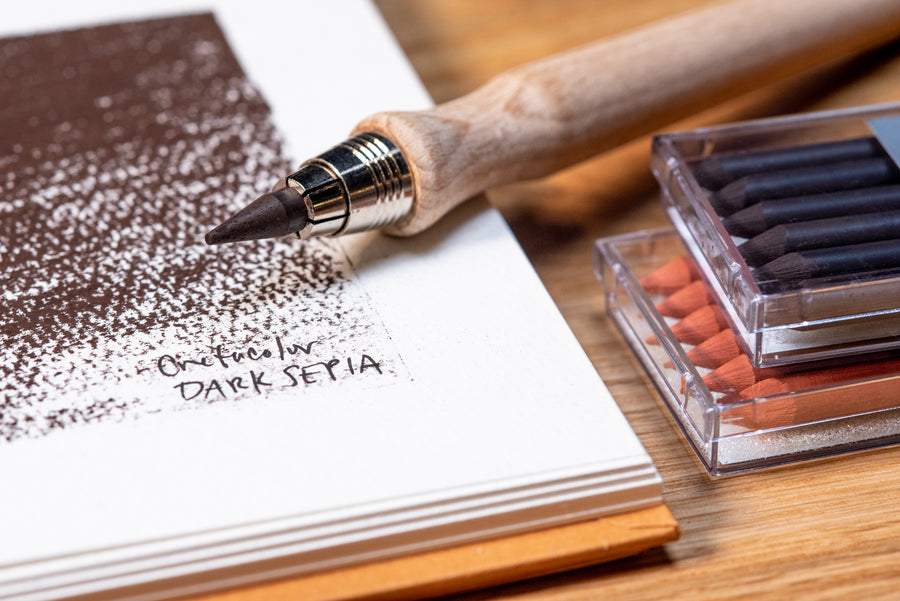 Cretacolor
DARK SEPIA